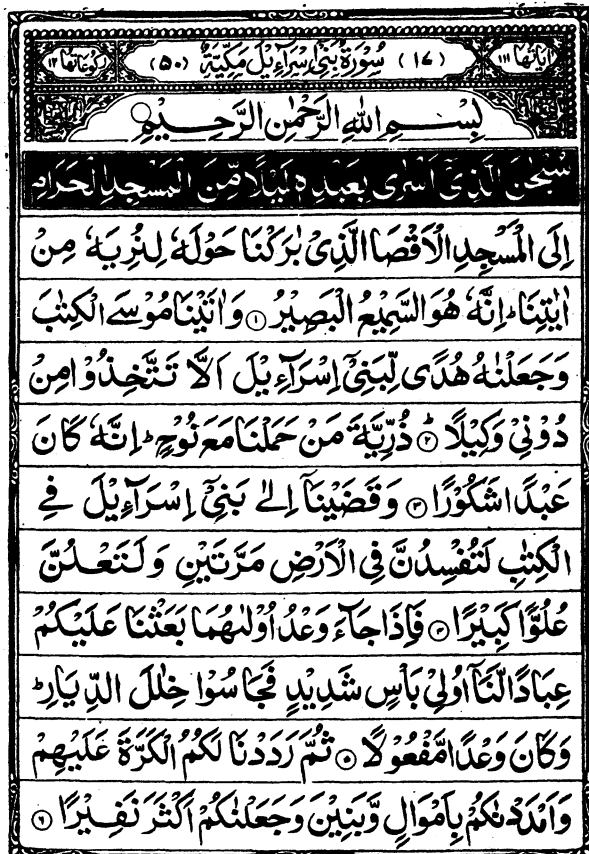 اٰیاتھا ۱۱۱ (۱۷) سُوْرَةُ بَنِیْۤ اِسْرَآءِیْلَ مَکِّیَّةٌ (۵۰) رکوعاتھا ۱۲
بِسْمِ اللهِ الرَّحْمٰنِ الرَّحِیْمِ
سُبْحٰنَ الَّذِیْۤ اَسْرٰی بِعَبْدِهٖ لَیْلًا مِّنَ الْمَسْجِدِ الْحَرَامِ
اِلَی الْمَسْجِدِ الْاَقْصَا الَّذِیْ بٰرَكْنَا حَوْلَهٗ لِنُرِیَهٗ مِنْ
اٰیٰتِنَا ؕ اِنَّهٗ هُوَ السَّمِیْعُ الْبَصِیْرُ ۝۱ وَاٰتَیْنَا مُوْسَی الْكِتٰبَ
وَجَعَلْنٰهُ هُدًی لِّبَنِیْۤ اِسْرَآءِیْلَ اَلَّا تَتَّخِذُوْا مِنْ
دُوْنِیْ وَكِیْلًا ۝۲ؕ ذُرِّیَّةَ مَنْ حَمَلْنَا مَعَ نُوْحٍ ؕ اِنَّهٗ كَانَ
عَبْدًا شَكُوْرًا ۝۳ وَقَضَیْنَاۤ اِلٰی بَنِیْۤ اِسْرَآءِیْلَ فِی
الْكِتٰبِ لَتُفْسِدُنَّ فِی الْاَرْضِ مَرَّتَیْنِ وَلَتَعْلُنَّ
عُلُوًّا كَبِیْرًا ۝۴ فَاِذَا جَآءَ وَعْدُ اُوْلٰىهُمَا بَعَثْنَا عَلَیْكُمْ
عِبَادًا لَّنَاۤ اُولِیْ بَاْسٍ شَدِیْدٍ فَجَاسُوْا خِلٰلَ الدِّیَارِ ؕ
وَكَانَ وَعْدًا مَّفْعُوْلًا ۝۵ ثُمَّ رَدَدْنَا لَكُمُ الْكَرَّةَ عَلَیْهِمْ
وَاَمْدَدْنٰكُمْ بِاَمْوَالٍ وَّبَنِیْنَ وَجَعَلْنٰكُمْ اَكْثَرَ نَفِیْرًا ۝۶